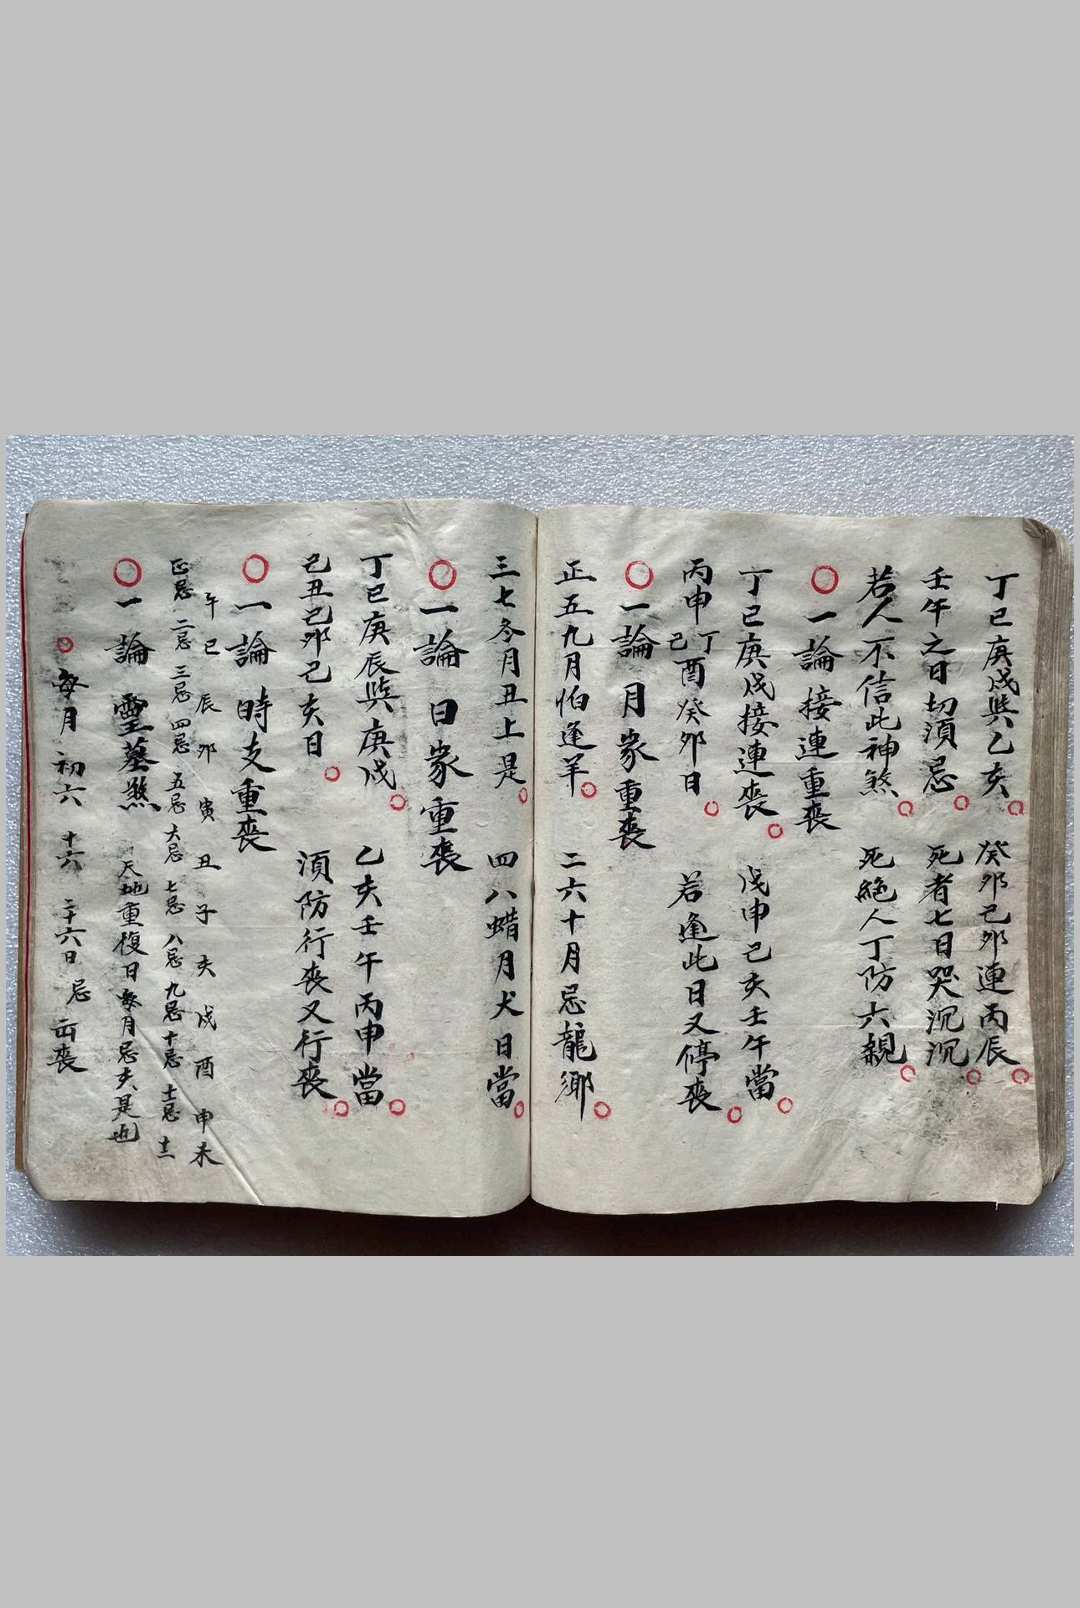 丁巳庚戌與乙亥 癸卯己卯連丙辰
壬午之日切須忌 死者七日哭沉沉
若人不信此神煞 死絕人丁防六親
一論接連重喪
丁巳庚戌接連喪 戊申己亥壬午當
丙申丁己酉癸卯日 若逢此日又停喪
一論月家重喪
正五九月怕逢羊 二六十月忌龍鄉
三七冬月丑上是 四八蜡月犬日當
一論日家重喪
丁巳庚辰與庚戌 乙亥壬午丙申當
己丑己卯己亥日 須防行喪又行喪
一論時支重喪
午巳辰卯寅丑子亥戌酉申未
正忌二忌三忌四忌五忌六忌七忌八忌九忌十忌十一忌十二
一論靈墓煞 天地重復日每月忌亥是也
每月初六 十六 二十六日忌出喪